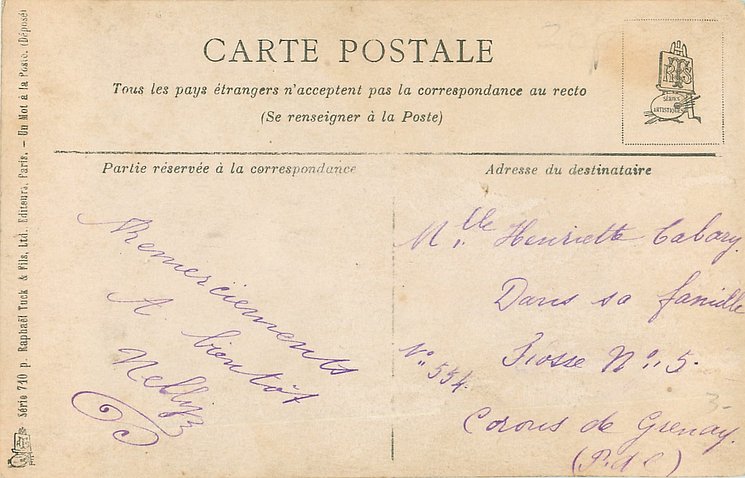 CARTE POSTALE
Tous les pays étrangers n'acceptent pas la correspondance au recto
(Se renseigner à la Poste)
RTS
SÉRIES
ARTISTIQUES
Partie réservée à la correspondance
Adresse du destinataire
Remerciements
A bientôt
Nelly
Mlle Henriette Cabary
Dans sa famille
N° 554.
Fosse N° 5.
Corons de Grenay.
(P. d. C)
3-
Série 710 p. Raphaël Tuck & Fils, Ltd. Editeurs, Paris. — Un Mot à la Poste. (Déposé)